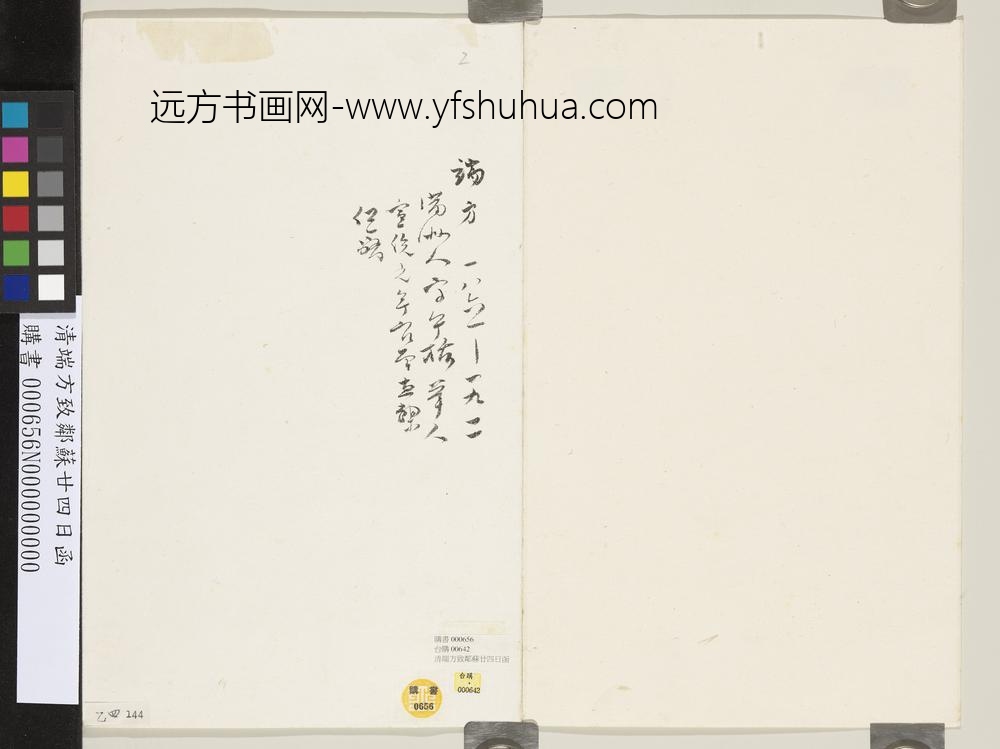 2
远方书画网-www.yfshuhua.com
端方 一八六一—一九一一
满洲人 字午桥 举人
宣统元年官至直隶
总督
清端方致鄰蘇廿四日函
購書 000656N000000000
購書 000656
台購 00642
清端方致鄰蘇廿四日函
台購
000642
購書
0656
乙四 144